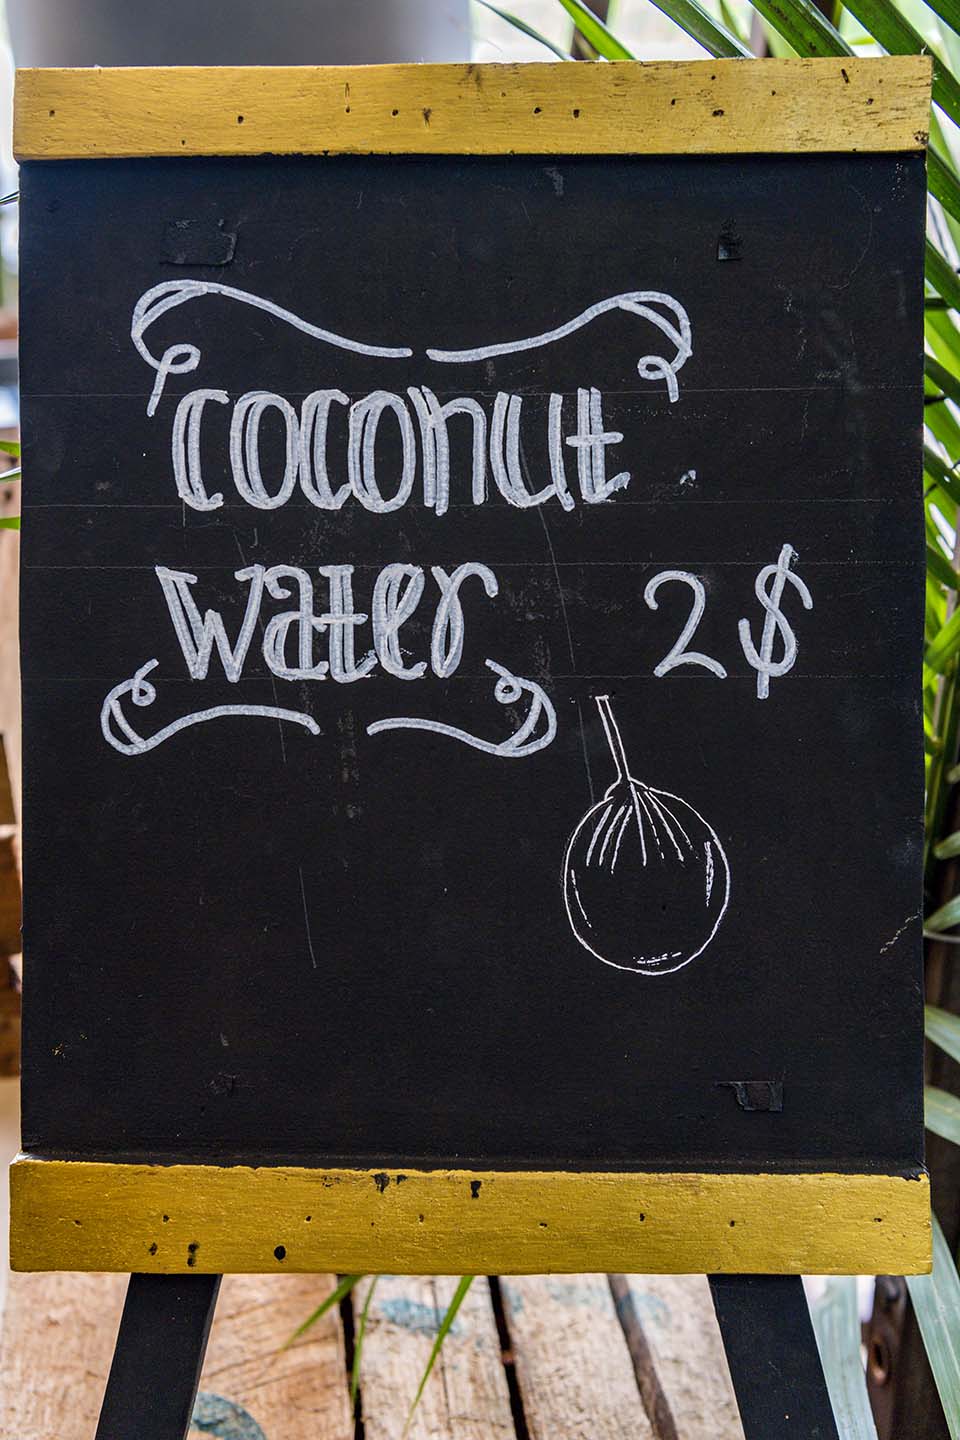 coconut
water 2$